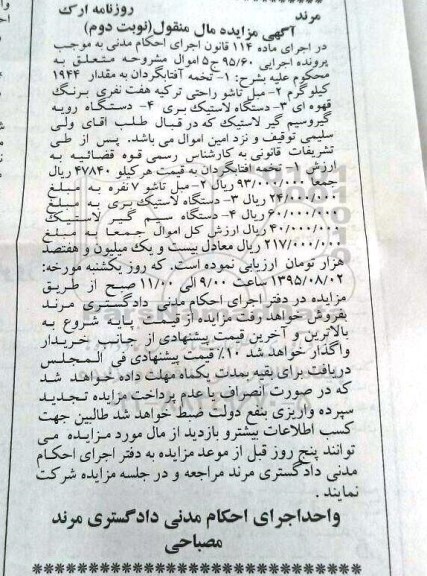 مرند
روزنامه ارک
آگهی مزایده مال منقول(نوبت دوم)
در اجرای ماده ۱۱۴ قانون اجرای احکام مدنی به موجب
پرونده اجرایی ۹۵/۶۰ ج۵ اموال مشروحه متعلق به
محکوم علیه بشرح: ۱- تخمه آفتابگردان به مقدار ۱۹۴۴
کیلو گرم ۲- مبل تاشو راحتی ترکیه هفت نفری برنگ
قهوه ای ۳- دستگاه لاستیک بری ۴- دستگاه رویه
گیروسیم گیر لاستیک که در قبال طلب آقای ولی
سلیمی توقیف و نزد امین اموال می باشد. پس از طی
تشریفات قانونی به کارشناس رسمی قوه قضائیه به
ارزش ۱- تخمه آفتابگردان به قیمت هر کیلو ۴۷۸۴۰ ریال
جمعا ۹۳/۰۰۰/۰۰۰ ریال ۲- مبل تاشو ۷ نفره به مبلغ
۲۴/۰۰۰/۰۰۰ ریال ۳- دستگاه لاستیک بری به مبلغ
۶۰/۰۰۰/۰۰۰ ریال ۴- دستگاه سیم گیر لاستیک
۴۰/۰۰۰/۰۰۰ ریال ارزش کل اموال جمعا به مبلغ
۲۱۷/۰۰۰/۰۰۰ ریال معادل بیست و یک میلیون و هفتصد
هزار تومان ارزیابی نموده است. که روز یکشنبه مورخه:
۱۳۹۵/۰۸/۰۲ ساعت ۹/۰۰ الی ۱۱/۰۰ صبح از طریق
مزایده در دفتر اجرای احکام مدنی دادگستری مرند
بفروش خواهد رفت مزایده از قیمت پایه شروع به
بالاترین و آخرین قیمت پیشنهادی از جانب خریدار
واگذار خواهد شد ۱۰٪ قیمت پیشنهادی فی المجلس
دریافت برای بقیه بمدت یکماه مهلت داده خواهد شد
که در صورت انصراف یا عدم پرداخت مزایده تجدید
سپرده واریزی بنفع دولت ضبط خواهد شد طالبین جهت
کسب اطلاعات بیشتر و بازدید از مال مورد مزایده می
توانند پنج روز قبل از موعد مزایده به دفتر اجرای احکام
مدنی دادگستری مرند مراجعه و در جلسه مزایده شرکت
نمایند .
واحد اجرای احکام مدنی دادگستری مرند
مصباحی